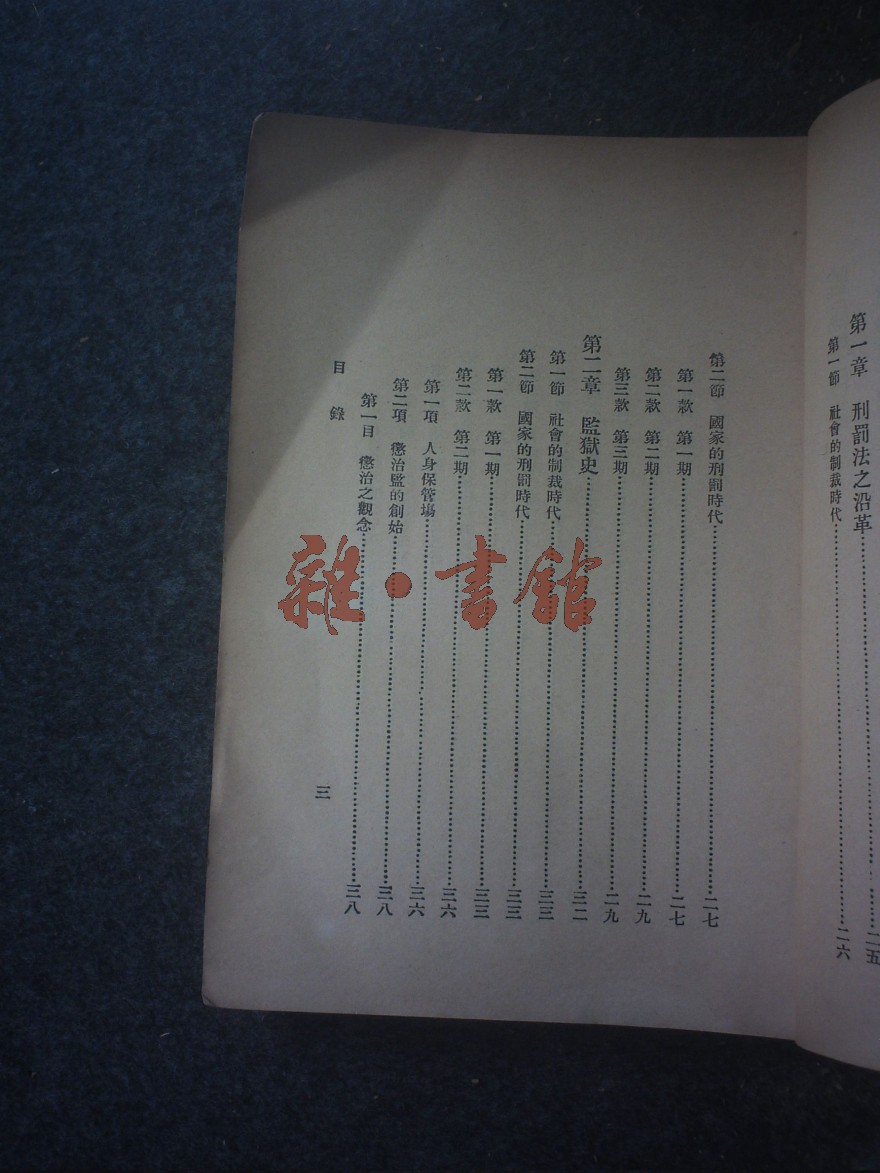 第一章　刑罰法之沿革……二五
第一節　社會的制裁時代……二六
第二節　國家的刑罰時代……二七
第一款　第一期……二七
第二款　第二期……二九
第三款　第三期……二九
第二章　監獄史……三二
第一節　社會的制裁時代……三三
第二節　國家的刑罰時代……三三
第一款　第一期……三三
第二款　第二期……三六
第一項　人身保管場……三六
第二項　懲治監的創始……三八
第一目　懲治之觀念……三八
目　錄
三
雜·書館